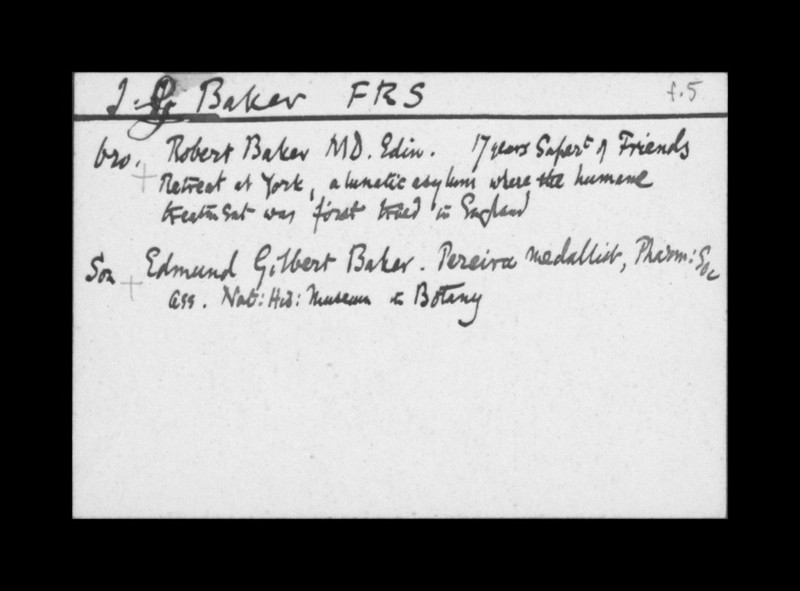 J. G. Baker FRS f.5
bro. Robert Baker MD. Edin. 17 years Supert of Friends
Retreat at York, a lunatic asylum where the humane
treatment was first tried in England
Son Edmund Gilbert Baker. Pereira medallist, Pharm: Soc
ass. Nat: His: Museum in Botany